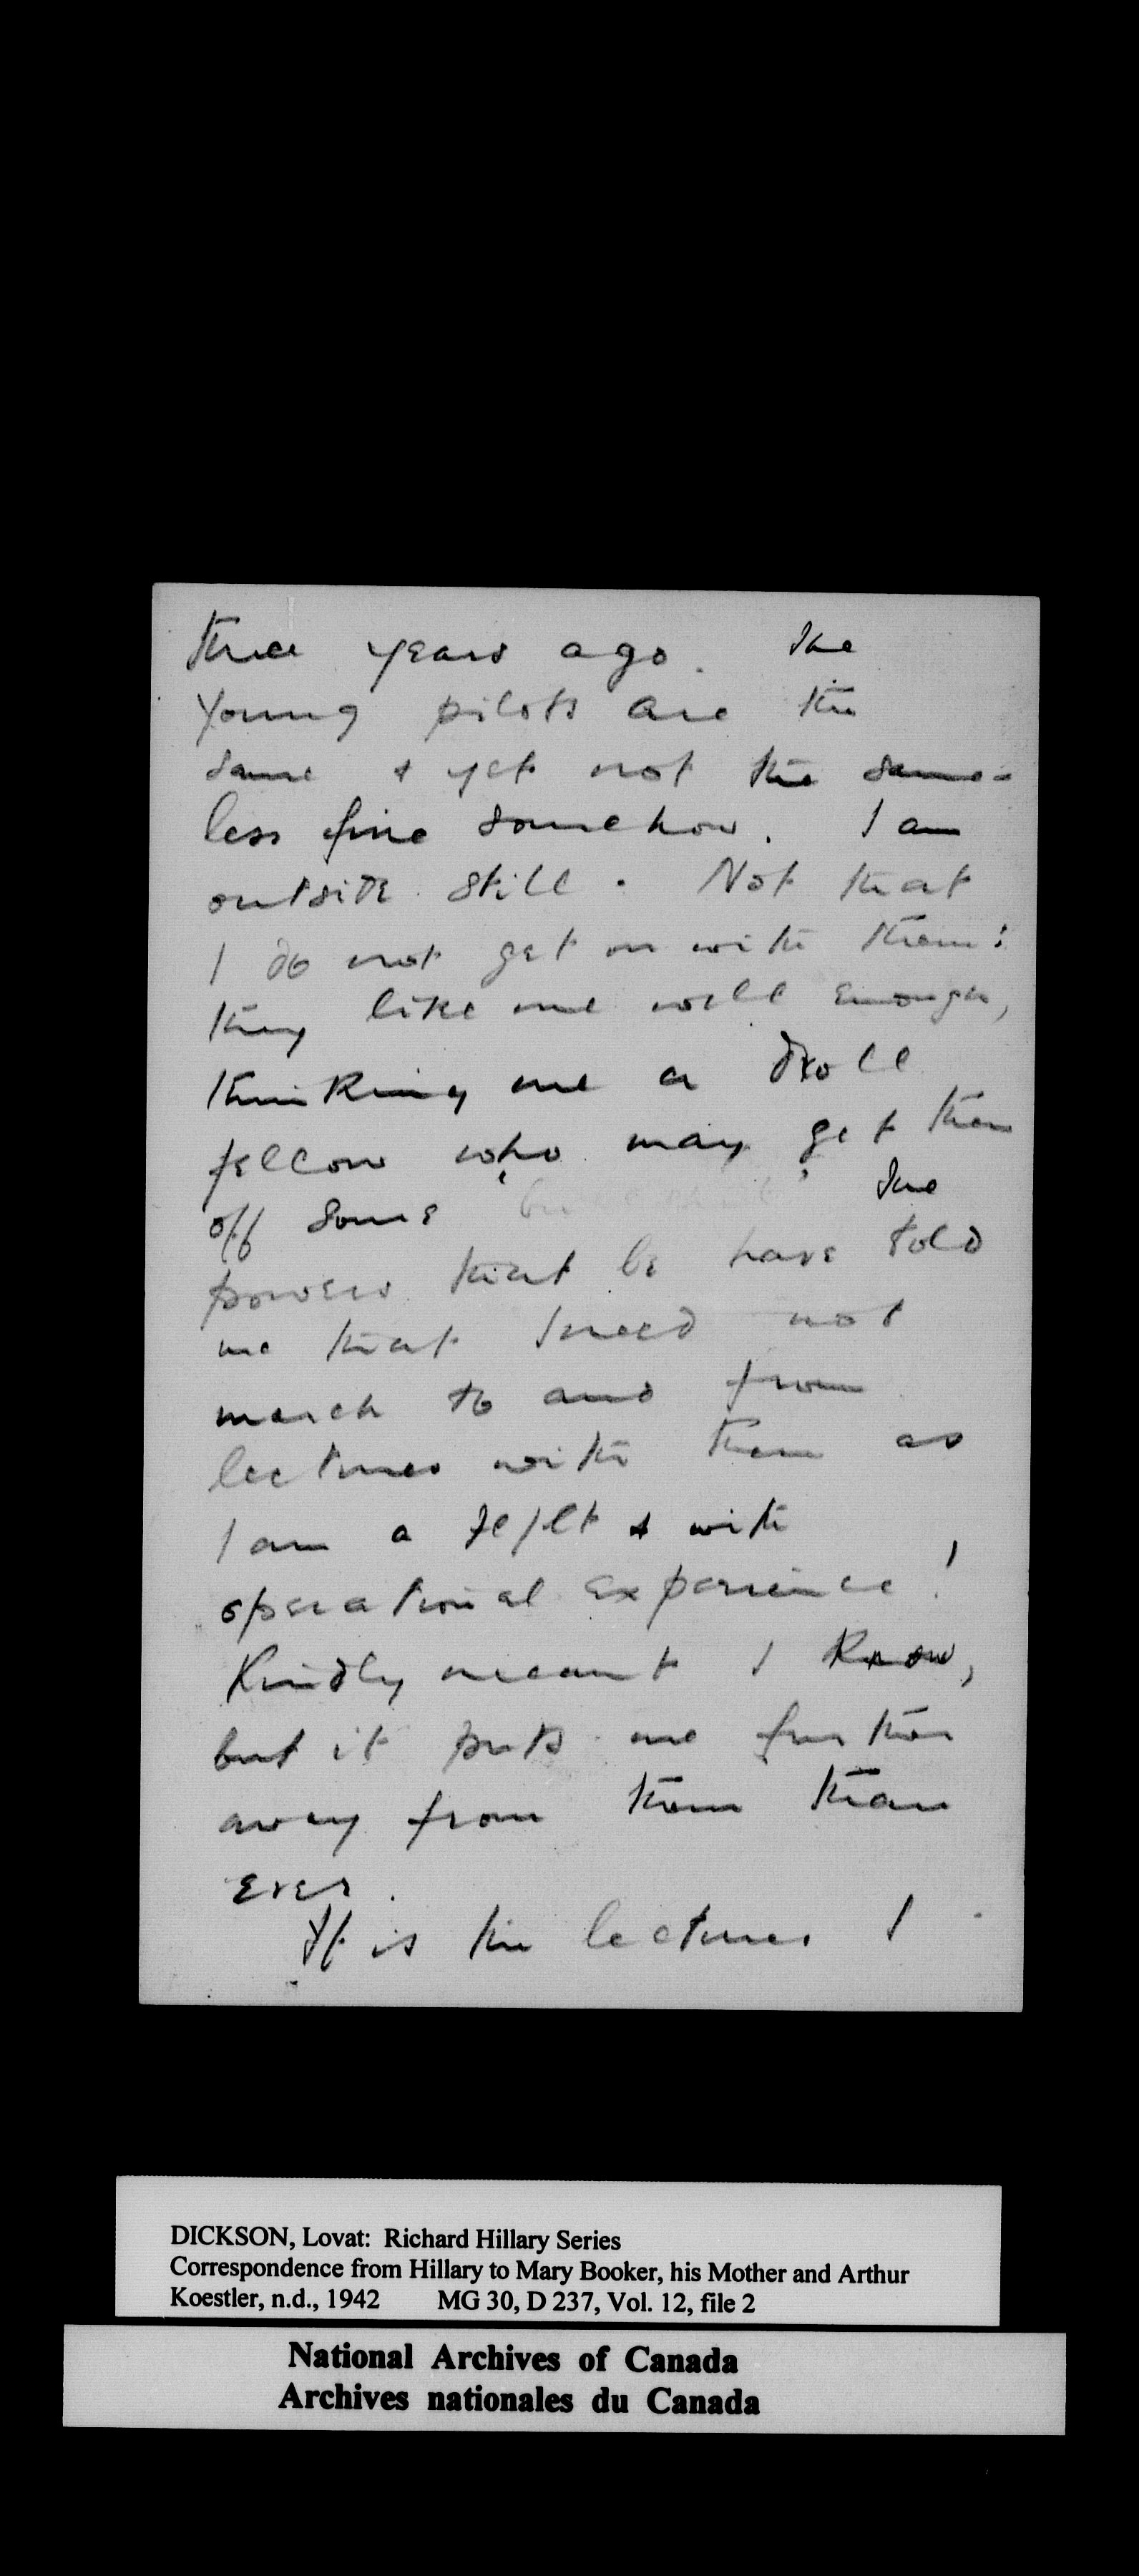 three years ago. The
young pilots are the
same & yet not the same -
less fine somehow. I am
outside still. Not that
I do not get on with them:
they like me well enough,
thinking me a droll
fellow who may get them
off some The
powers that be have told
me that I need not
march to and from
lectures with them as
I am a Fl/Lt & with
operational experience!
Kindly meant I know,
but it puts me further
away from them than
ever.
It is the lectures I
DICKSON, Lovat: Richard Hillary Series
Correspondence from Hillary to Mary Booker, his Mother and Arthur
Koestler, n.d., 1942 MG 30, D 237, Vol. 12, file 2
National Archives of Canada
Archives nationales du Canada